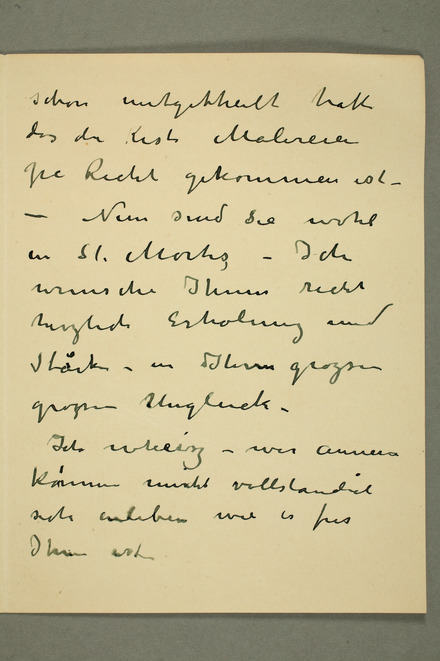 schon mitgetheilt hatte
das die Kiste Malereien
Recht gekommen ist –
– Nun sind Sie wohl
in St. Moritz – Ich
wunsche Ihnen recht
herzlich Erholung und
Stärke – in Ihrem grozsen
grozsen Ungluck –
Ich – wir
können nicht vollstandict
sich einleben wie es
Ihnen ist